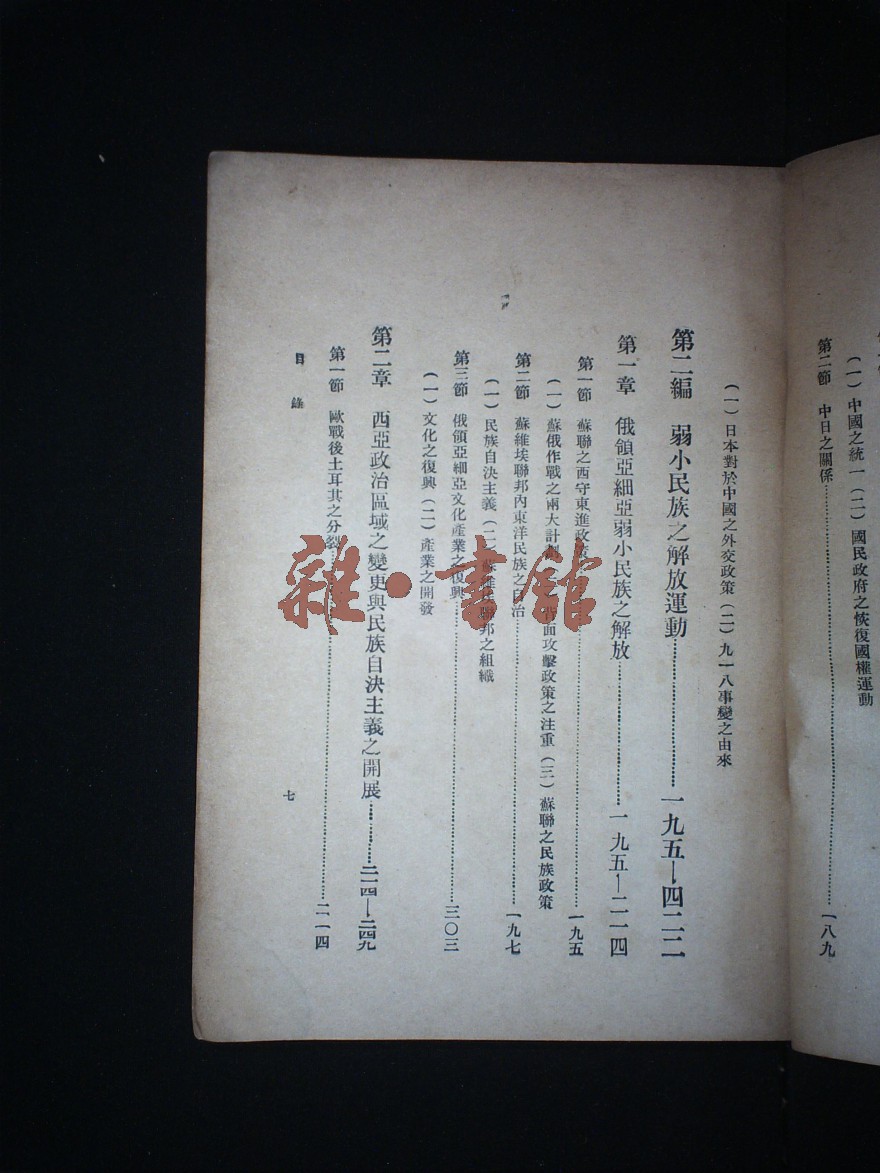 (一)中國之統一(二)國民政府之恢復國權運動
第二節 中日之關係……一八九
(一)日本對於中國之外交政策(二)九一八事變之由來
第二編 弱小民族之解放運動……一九五—四二二
第一章 俄領亞細亞弱小民族之解放……一九五—二一四
第一節 蘇聯之西守東進政策……一九五
(一)蘇俄作戰之兩大計劃 背面攻擊政策之注重(三)蘇聯之民族政策
第二節 蘇維埃聯邦內東洋民族之自治……一九七
(一)民族自決主義(二)蘇維埃聯邦之組織
第三節 俄領亞細亞文化產業之復興……三〇三
(一)文化之復興(二)產業之開發
第二章 西亞政治區域之變更與民族自決主義之開展……二一四—二四九
第一節 歐戰後土耳其之分裂……二一四
目錄
七
雜·書館